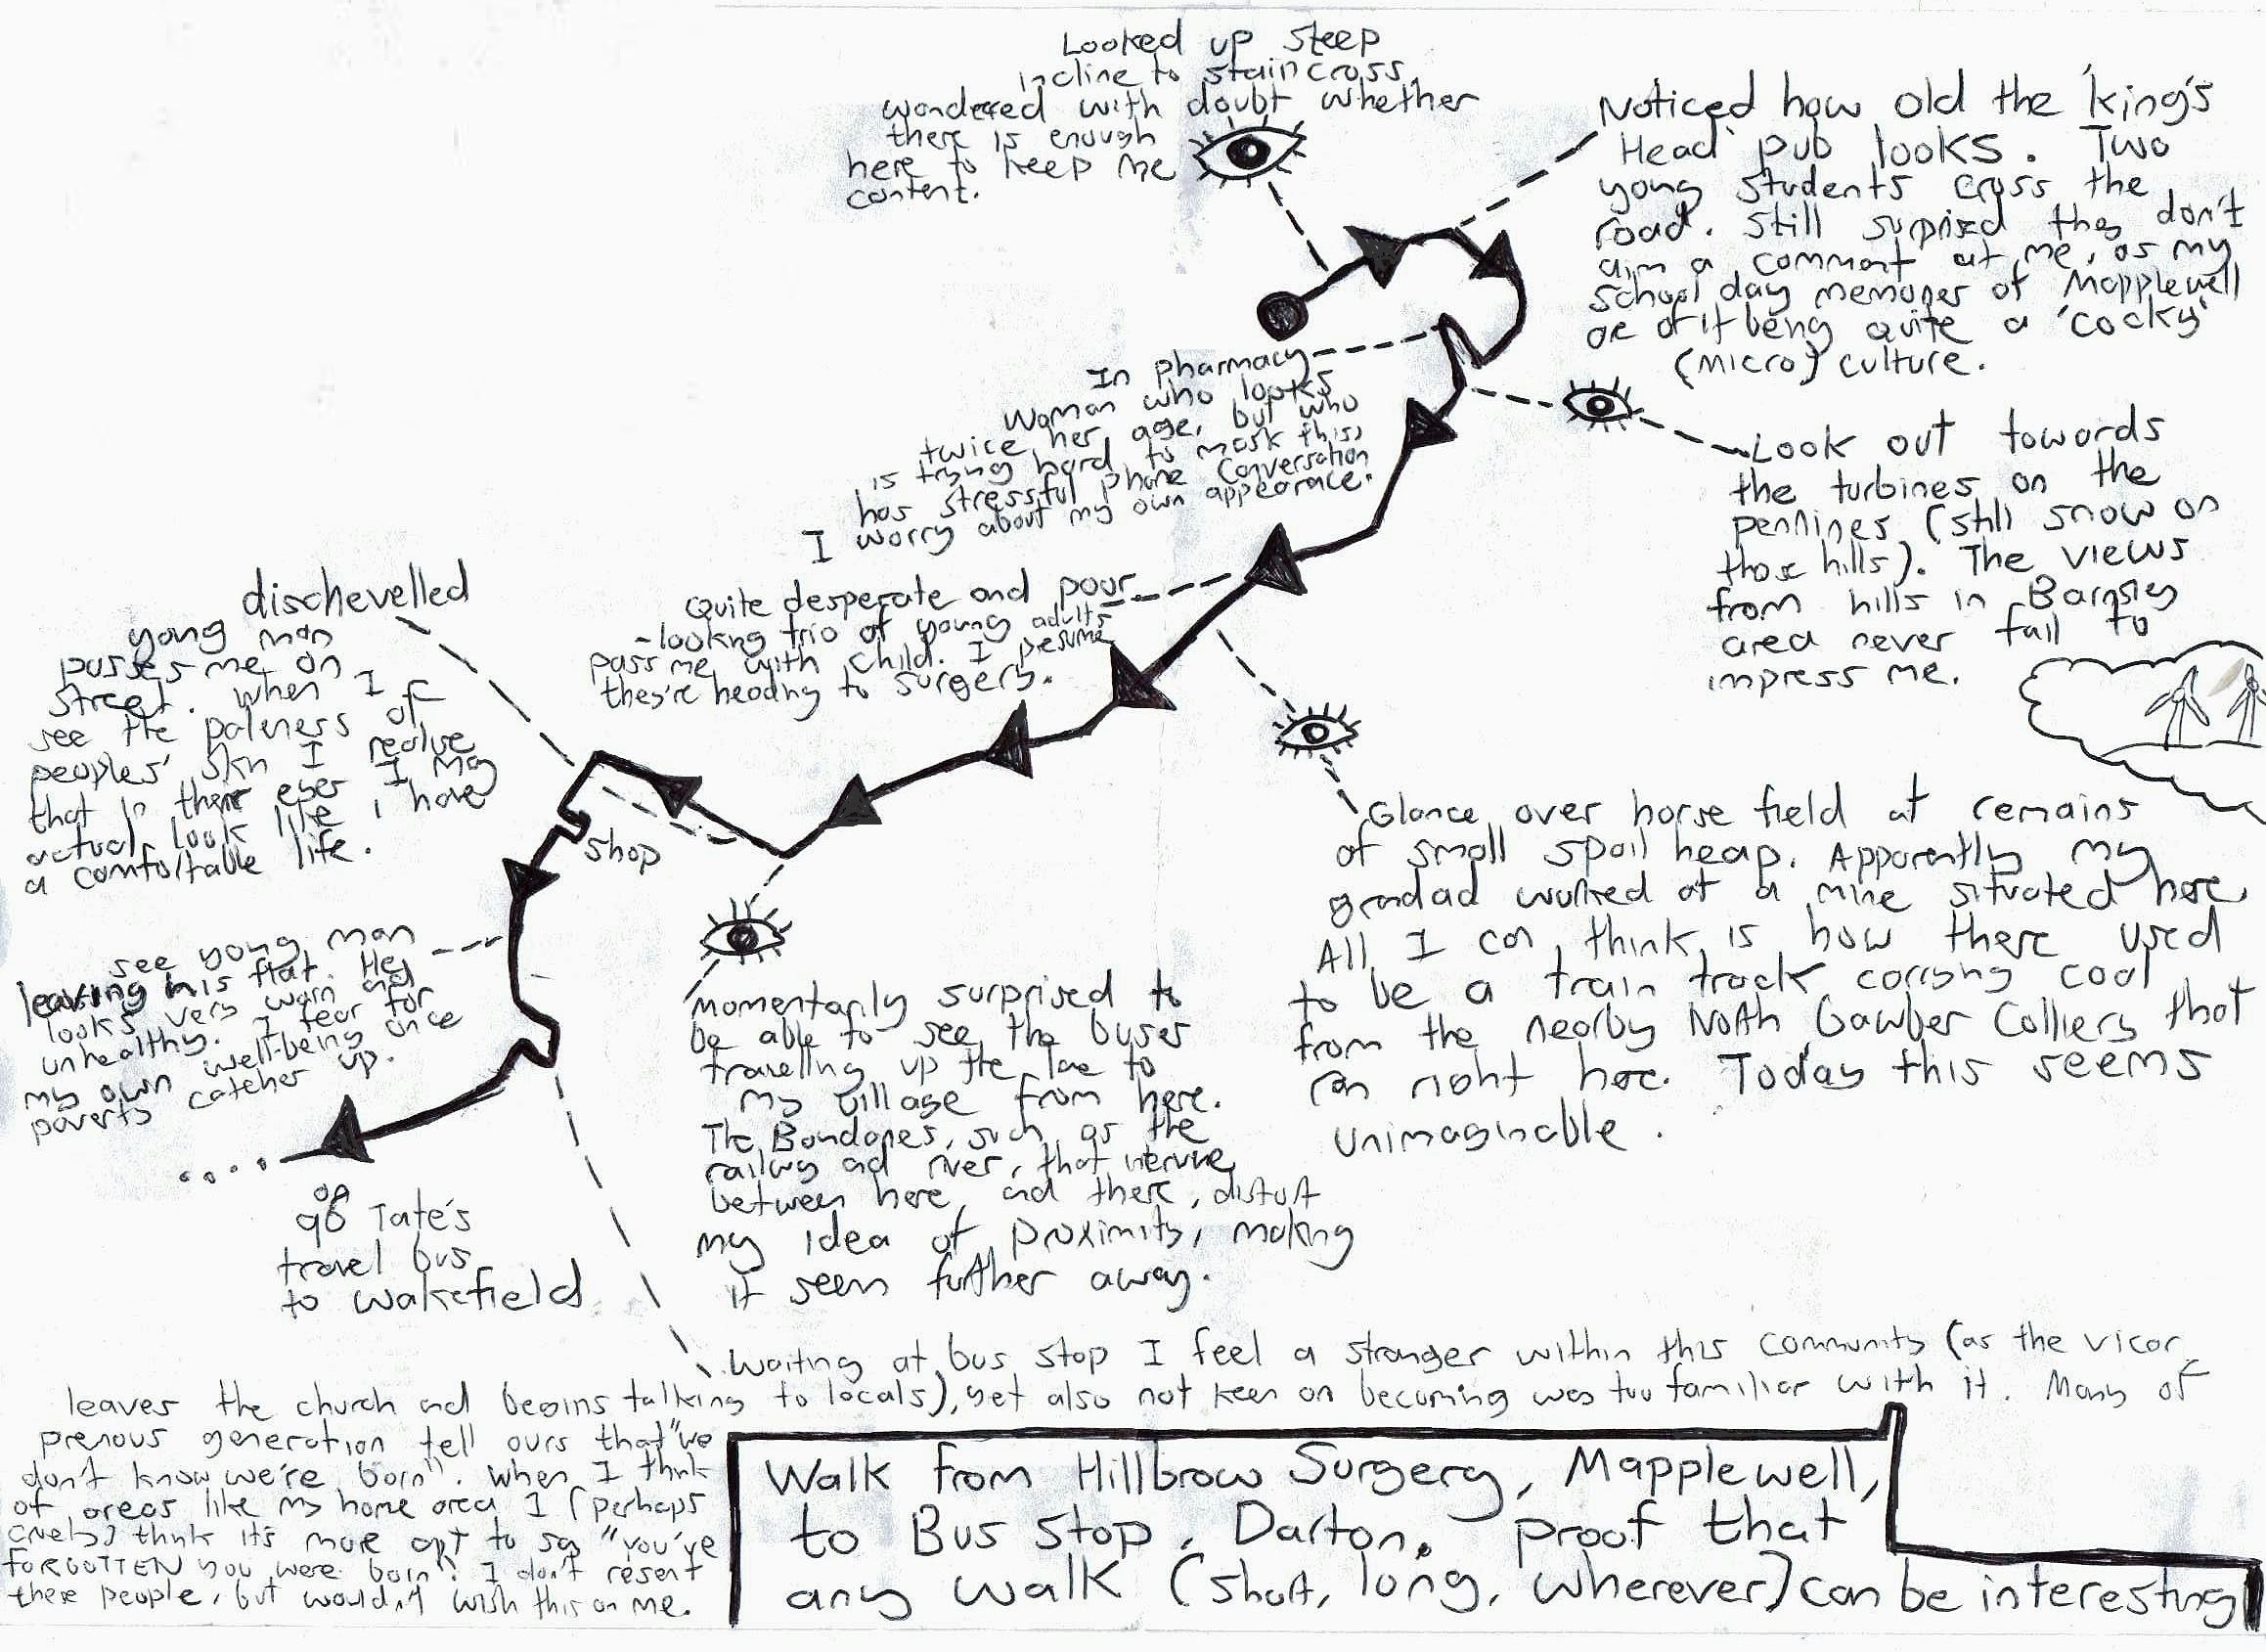 Looked up steep
incline to staincross,
wondered with doubt whether
there is enough
here to keep me
content.
Noticed how old the 'king's
Head' pub looks. Two
yong students cross the
road. Still suprised they don't
aim a comment at me, as my
school day memories of Mapplewell
are of it being quite a 'cocky'
(micro) culture.
In pharmacy
Woman who looks
twice her age, but who
is trying hard to mask this,
has stressful phone conversation
I worry about my own appearace.
Look out towards
the turbines on the
pennines (still snow on
those hills). The views
from hills in Barnsley
area never fail to
impress me.
Quite desperate and poor
-looking trio of young adults
pass me with child. I presume
they're heading to surgery.
dischevelled
yong man
passes me on
street. When I
see the paleness of
peoples' skin I realise
that in their eyes I may
actual look like I have
a comfortable life.
Shop
Glance over horse field at remains
of small spoil heap. Apparently my
grandad worked at a mine situated here.
All I can think is how there used
to be a train track carrying coal
from the nearby North Gawber Colliery that
ran right here. Today this seems
unimaginable.
see yong man
leaving his flat. He
looks very worn and
unhealthy. I fear for
my own well-being once
poverty catches up.
Momentarily surprised to
be able to see the buses
travelling up the lane to
my village from here.
The Boundaries, such as the
railway and river, that intervene
between here and there, distort
my idea of proximity, making
it seem further away.
on
96 Tate's
travel bus
to wakefield
Waiting at bus stop I feel a stranger within this community (as the vicar
leaves the church and begins talking to locals), yet also not keen on becoming was too familiar with it. Many of
previous generation tell ours that "we
don't know we're born". When I think
of areas like my home area I (perhaps
cruely) think it's more apt to say "you've
FORGOTTEN you were born". I don't resent
these people, but wouldn't wish this on me.
Walk from Hillbrow Surgery, Mapplewell,
to Bus stop, Darton. proof that
any walk (short, long, wherever) can be interesting